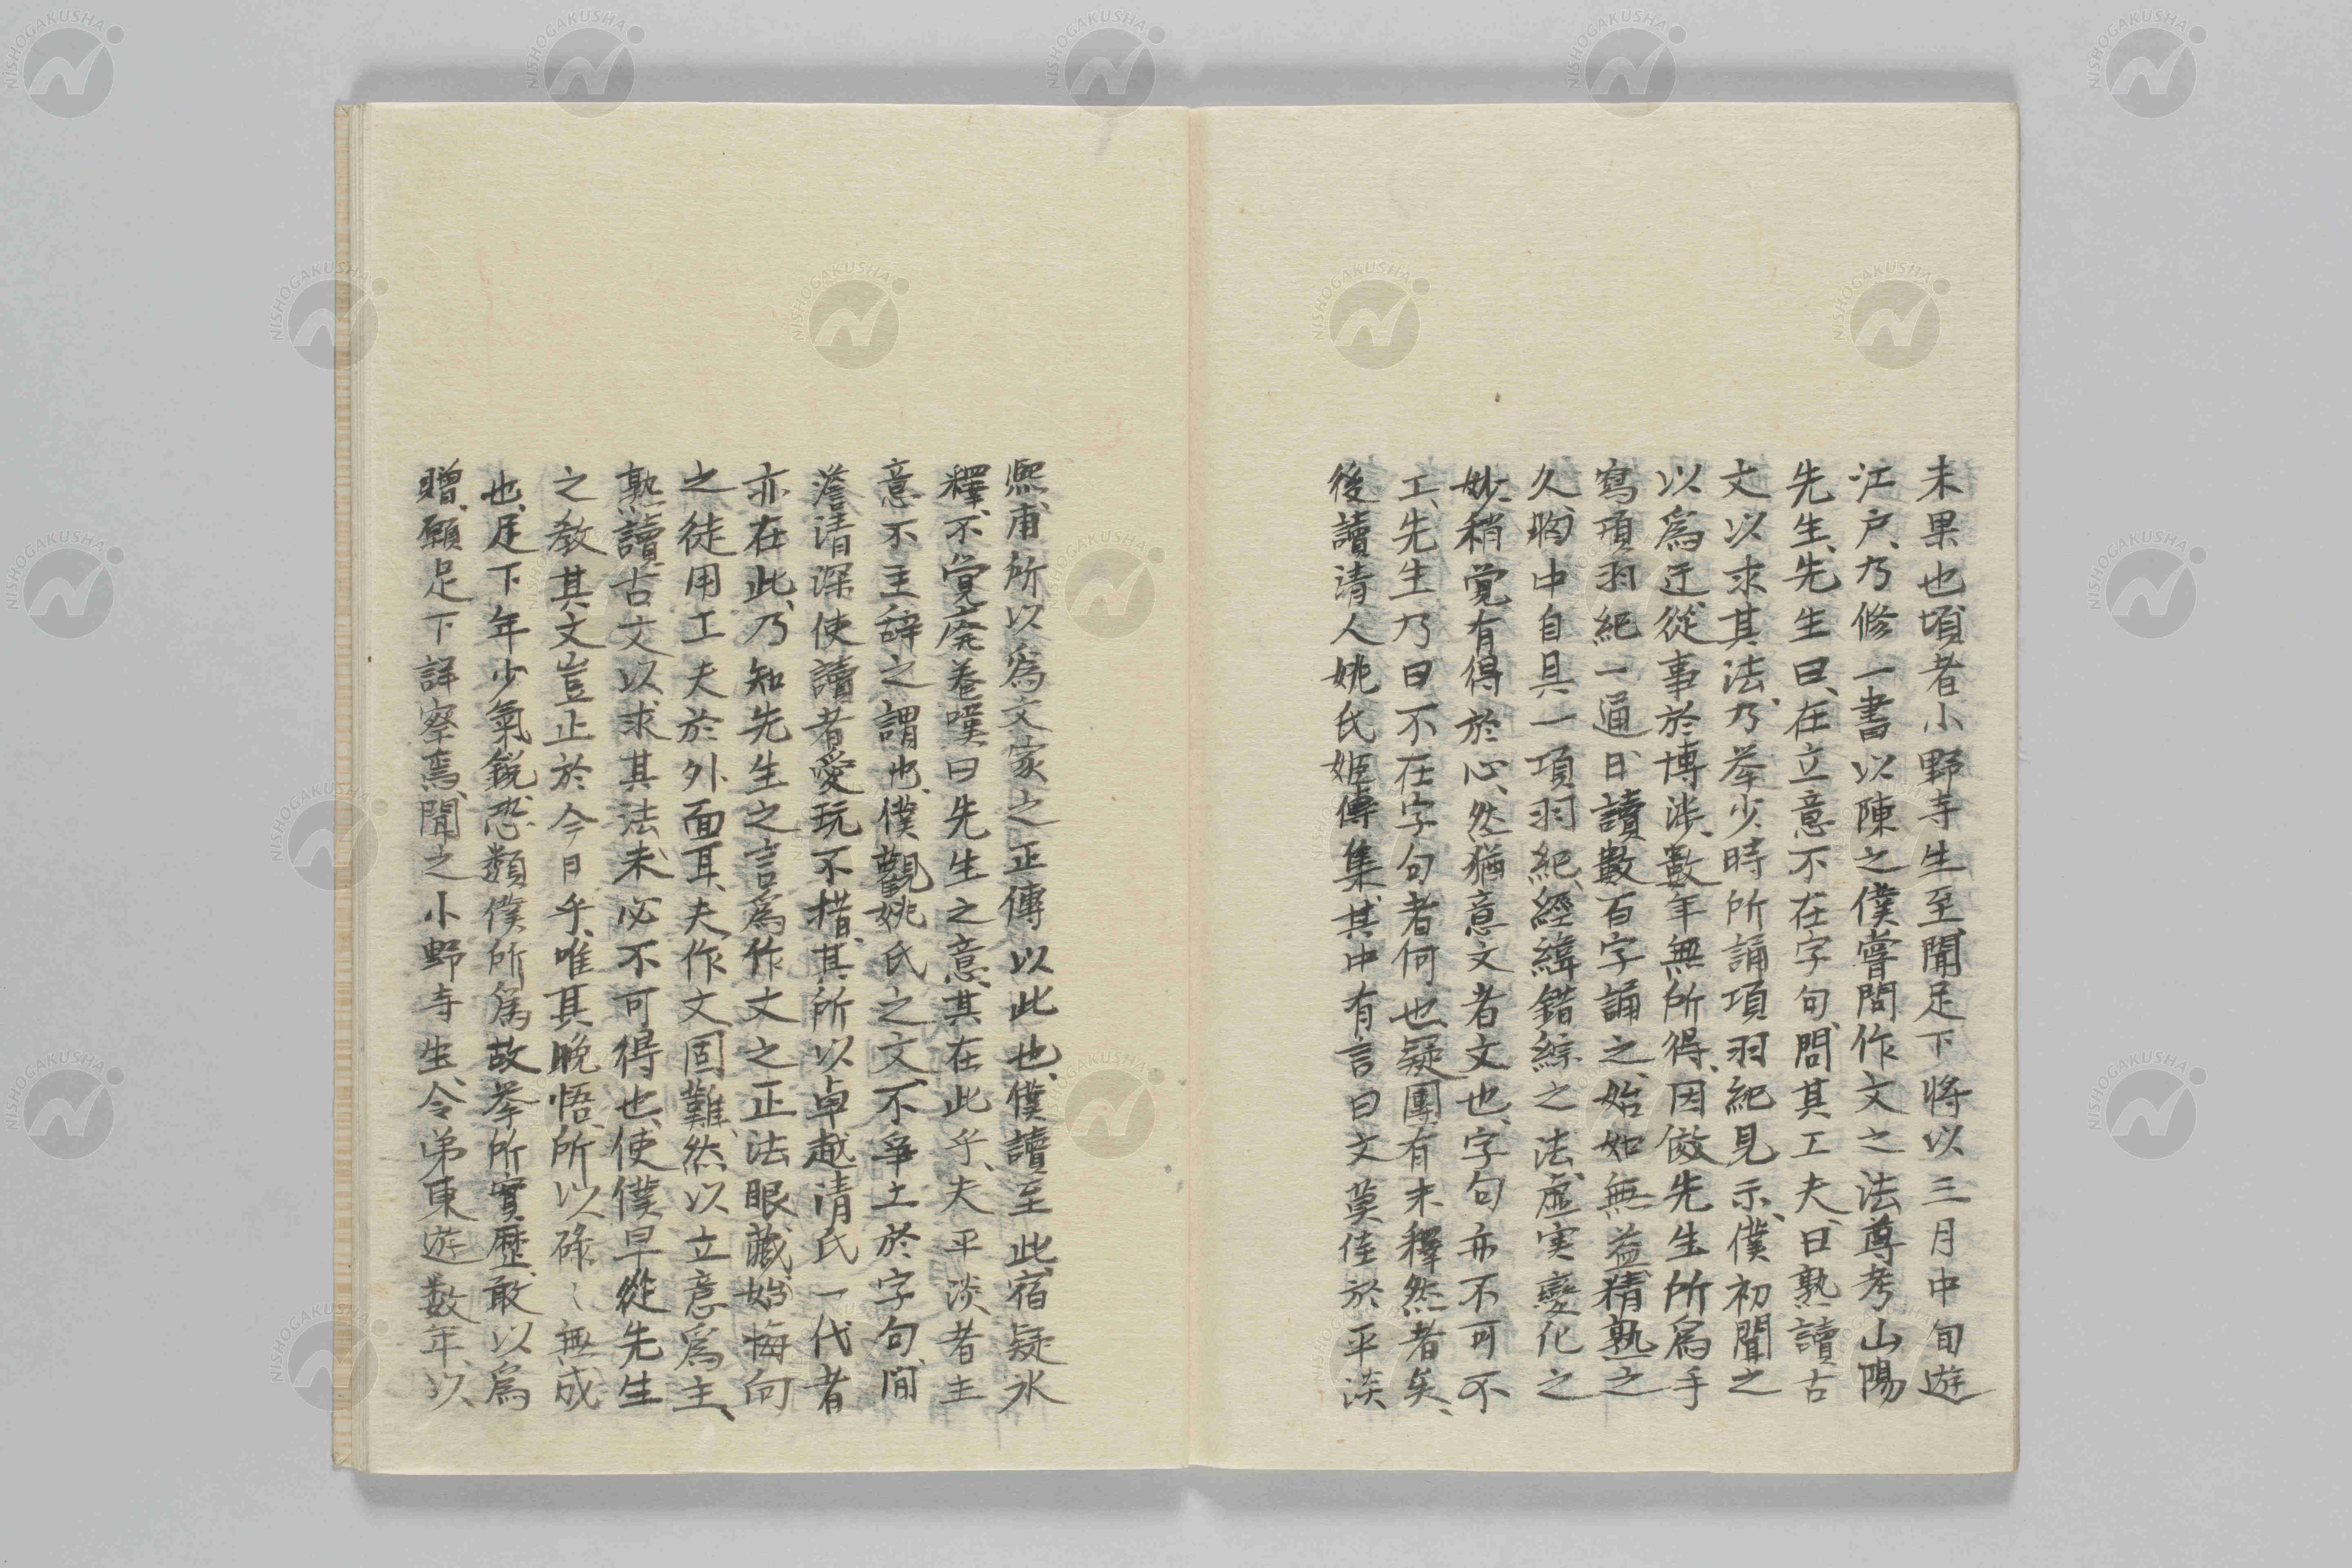 未果也頃者小野寺生至聞足下将以三月中旬遊
江戸、乃修一書以陳之僕嘗問作文之法尊考山陽
先生、先生曰、在立意不在字句、問其工夫、曰、熟讀古
文以求其法、乃挙少時所誦項羽紀見示、僕初聞之
以為迂、從事於博渉、數年無所得、因倣先生所為手
寫項羽紀一通、日讀數百字誦之、始如無益、精熟之
久、胸中自具一項羽紀、經緯錯綜之法、虚実變化之
妙、稍覚有得於心、然猶意文者文也、字句亦不可不
工、先生乃曰不在字句者何也疑團有未釋然者矣、
後讀清人姚氏姫傳集、其中有言曰文莫佳於平淡
熈甫所以為文家之正傳以此也、僕讀至此宿疑氷
釋、不覚廃巻嘆曰先生之意、其在此乎、夫平淡者主
意不主辞之謂也、僕觀姚氏之文、不爭土於字句、間
澹清深使讀者愛玩不措、其所以卓越清氏一代者
亦在此、乃知先生之言為作文之正法眼藏、始悔向
之徒用工夫於外面耳、夫作文固難、然以立意為主、
熟讀古文以求其法、未必不可得也、使僕早從先生
之教其文豈止於今日乎、唯其晩悟、所以碌〻無成
也、足下年少氣鋭、恐類僕所為故挙所實歴、敢以為
贈、願足下詳察焉、聞之小野寺生、令弟東遊数年、以
NISHOGAKUSHA